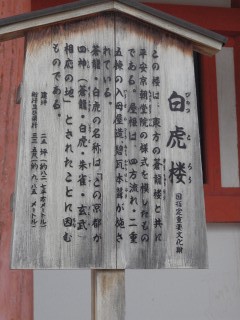 びゃっころう
白虎楼
国指定重要文化財
この楼は、東方の蒼龍楼と共に
平安京朝堂院の様式を模したもの
である。屋根は、四方流れ・二重
五棟の入母屋造碧瓦本葺が施さ
れている。
蒼龍・白虎の名称は「この京都が
四神（蒼龍・白虎・朱雀・玄武）
相応の地」とされたことに因む
ものである。